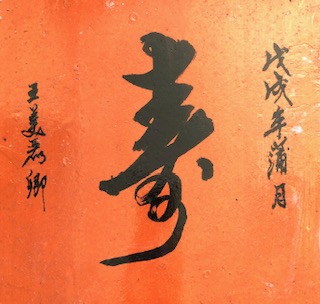 戊戌年蒲月
寿
王美荔卿